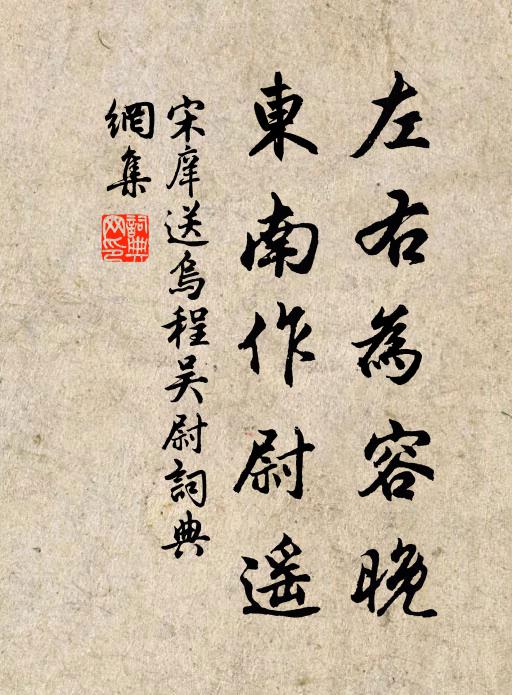 左右為容晚
東南作尉遥
宋庠送烏程吴尉詞典
網集
詞典
网印